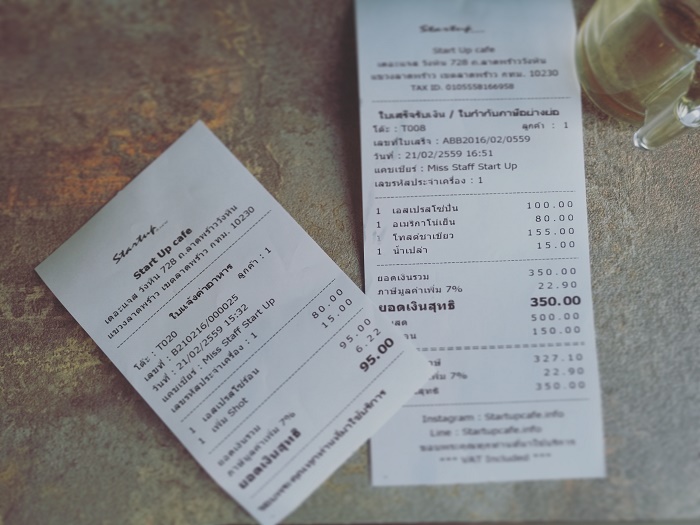 Startup
Start Up cafe
เดอะแจส วังหิน 728 ถ.ลาดพร้าววังหิน
แขวงลาดพร้าว เขตลาดพร้าว กทม. 10230
ใบแจ้งค่าอาหาร
โต๊ะ : T020 ลูกค้า : 1
เลขที่ : B210216/000025
วันที่ : 21/02/2559 15:32
แคชเชียร์ : Miss Staff Start Up
เลขรหัสประจำเครื่อง : 1
1 เอสเปรสโซ่ร้อน 80.00
1 เพิ่ม Shot 15.00
ยอดเงินรวม 95.00
ภาษีมูลค่าเพิ่ม 7% 6.22
ยอดเงินสุทธิ 95.00
Startup
Start Up cafe
เดอะแจส วังหิน 728 ถ.ลาดพร้าววังหิน
แขวงลาดพร้าว เขตลาดพร้าว กทม. 10230
TAX ID. 0105558166958
ใบเสร็จรับเงิน / ใบกำกับภาษีอย่างย่อ
โต๊ะ : T008 ลูกค้า : 1
เลขที่ใบเสร็จ : ABB2016/02/0559
วันที่ : 21/02/2559 16:51
แคชเชียร์ : Miss Staff Start Up
เลขรหัสประจำเครื่อง : 1
1 เอสเปรสโซ่ปั่น 100.00
1 อเมริกาโน่เย็น 80.00
1 โทสต์ชาเขียว 155.00
1 น้ำเปล่า 15.00
ยอดเงินรวม 350.00
ภาษีมูลค่าเพิ่ม 7% 22.90
ยอดเงินสุทธิ 350.00
สด 500.00
150.00
327.10
7% 22.90
350.00
Instagram : Startupcafe.info
Line : Startupcafe.info
*** VAT Included ***